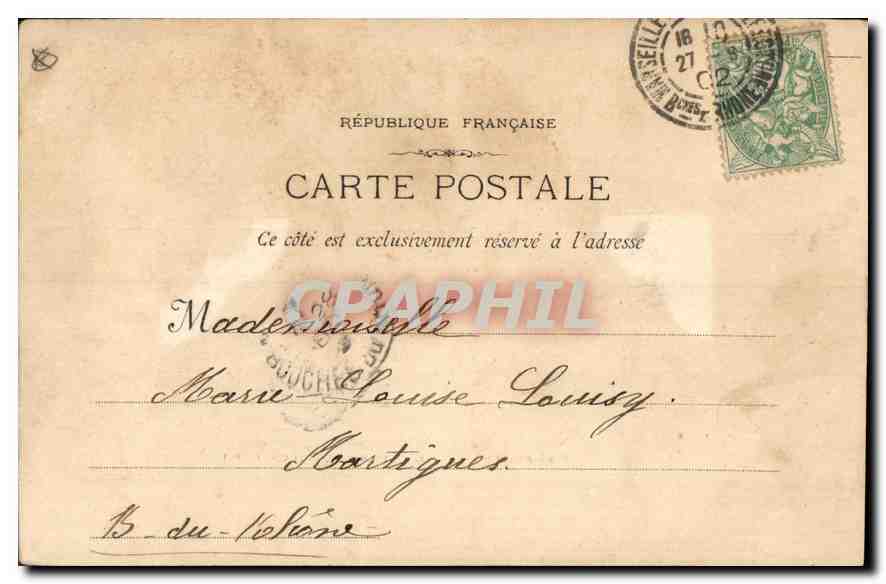 RÉPUBLIQUE FRANÇAISE
CARTE POSTALE
Ce côté est exclusivement réservé à l'adresse
CPAPHIL
Mademoiselle
Marie-Louise Louisy.
Martigues.
B-du-Rhône
MARSEILLE
18 10
27
02
BCHES DU RHONE
BOUCHES